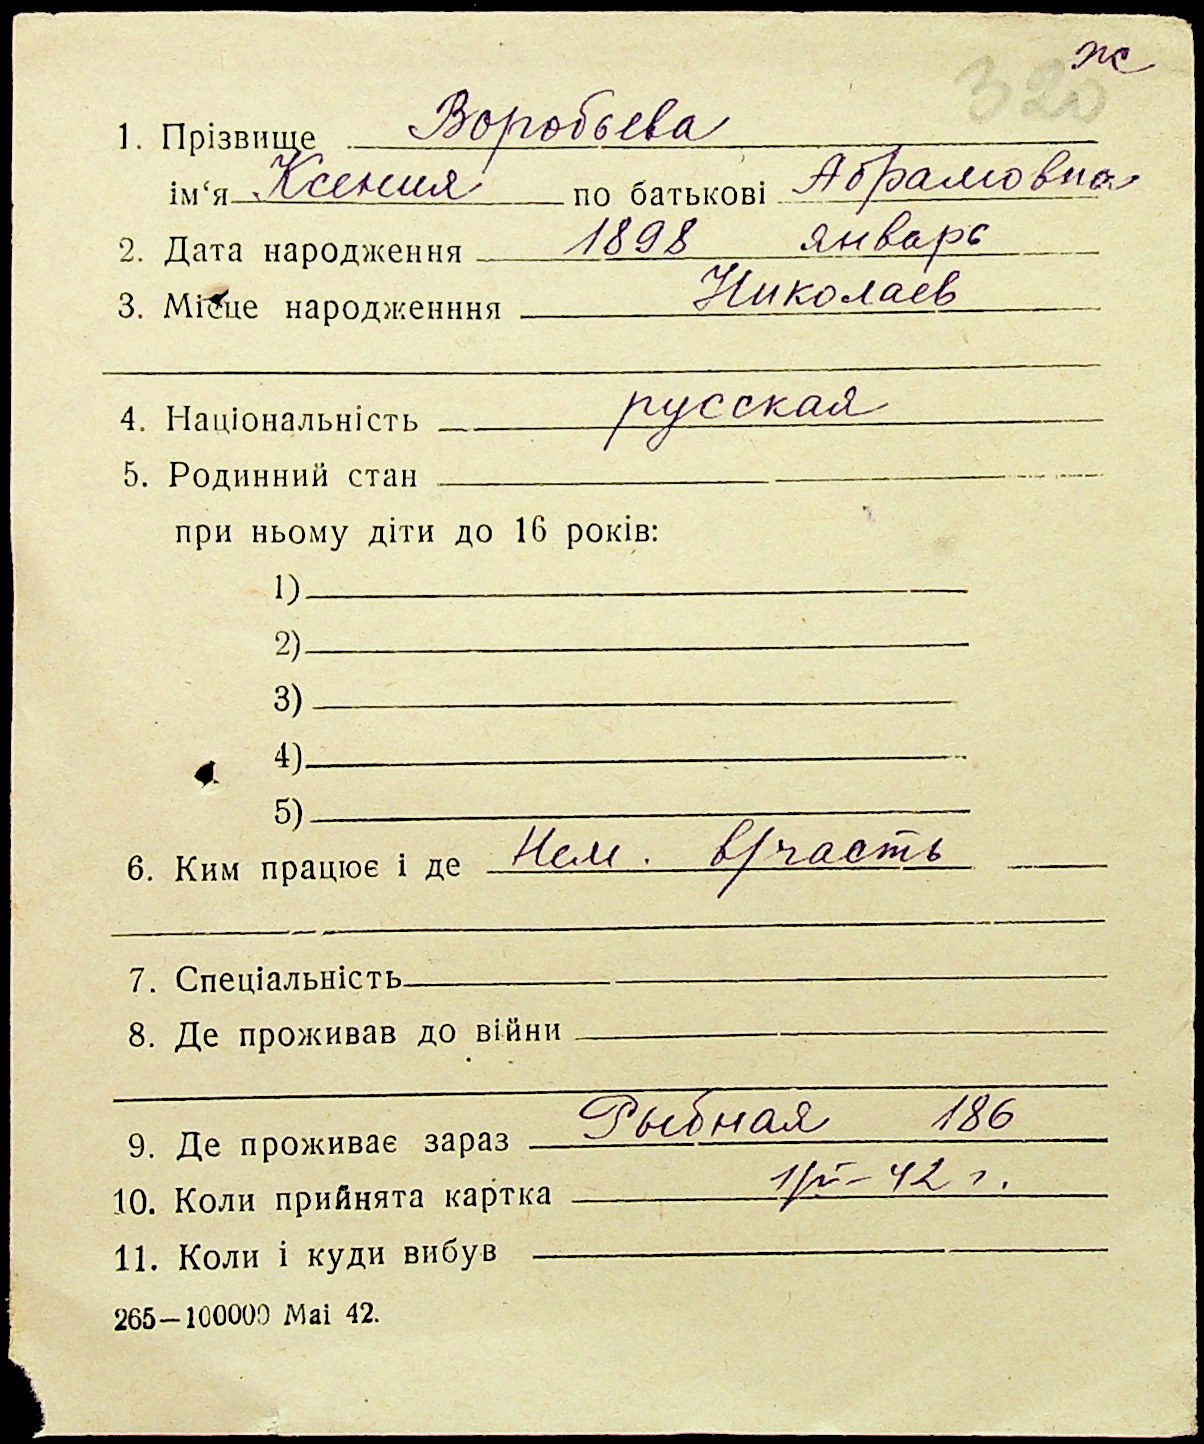 ж
320
1. Прізвище Воробьева
ім‘я Ксения по батькові Абрамовна
2. Дата народження 1898 январь
3. Місце народженння Николаев
4. Національність русская
5. Родинний стан
при ньому діти до 16 років:
1)
2)
3)
4)
5)
6. Ким працює і де Нем. в/часть
7. Спеціальність
8. Де проживав до війни
9. Де проживає зараз Рыбная 186
10. Коли прийнята картка - 42 г.
11. Коли і куди вибув
265—100000 Маі 42.